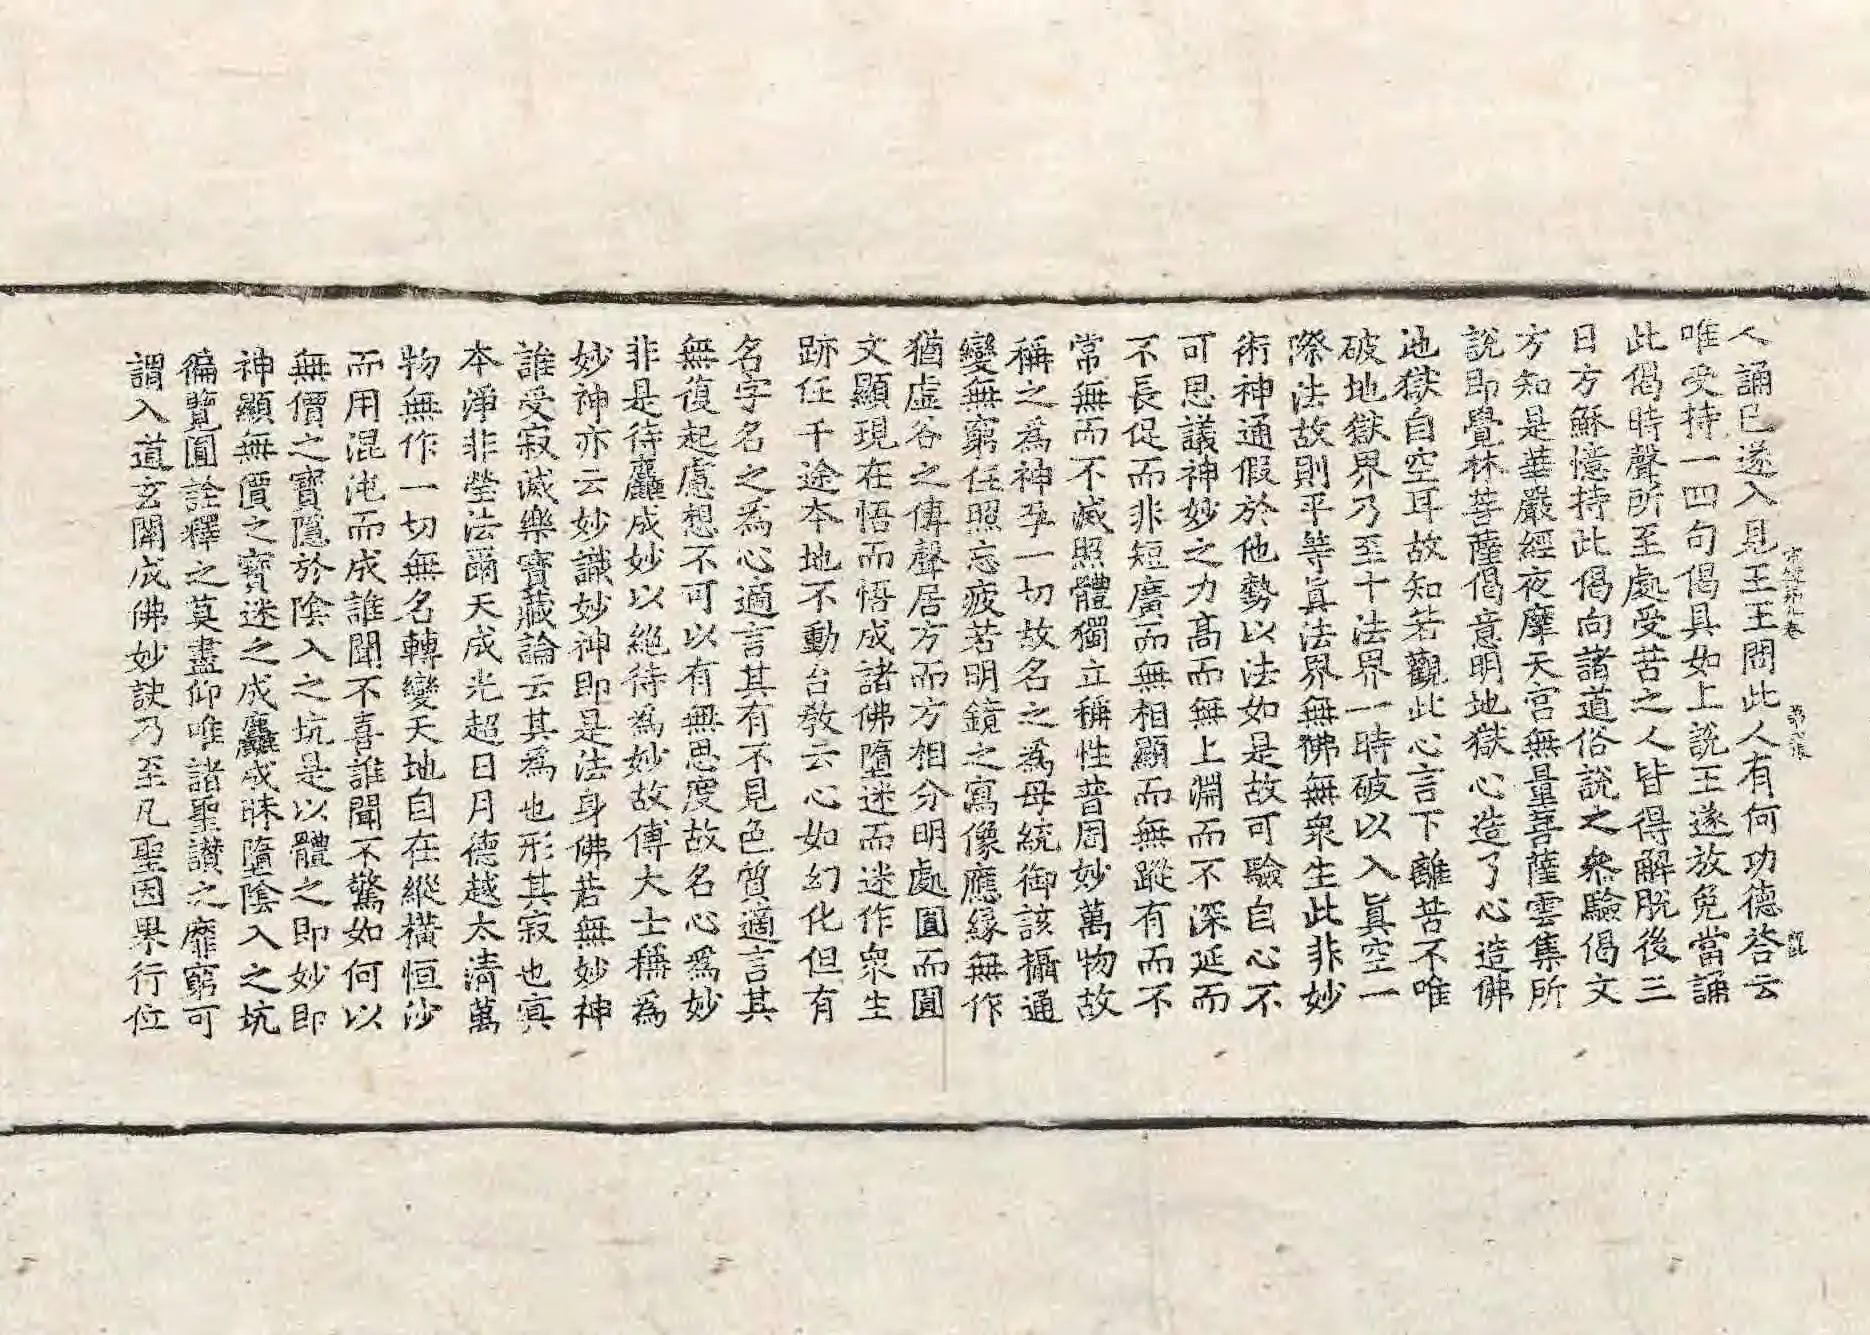 人誦已遂入見王王問此人有何功德答云
唯受持一四句偈具如上說王遂放免當誦
此偈時聲所至處受苦之人皆得解脫後三
日方蘇憶持此偈向諸道俗說之叅驗偈文
方知是華嚴經夜摩天宮無量菩薩雲集所
說即覺林菩薩偈意明地獄心造了心造佛
地獄自空耳故知若觀此心言下離苦不唯
破地獄界乃至十法界一時破以入眞空一
際法故則平等眞法界無佛無衆生此非妙
術神通假於他勢以法如是故可驗自心不
可思議神妙之力高而無上淵而不深延而
不長促而非短廣而無相顯而無蹤有而不
常無而不滅照體獨立稱性普周妙萬物故
稱之為神孕一切故名之為母統御該攝通
變無窮任照忘疲若明鏡之寫像應緣無作
猶虛谷之傳聲居方而方相分明處圓而圓
文顯現在悟而悟成諸佛墮迷而迷作衆生
跡任千途本地不動台教云心如幻化但有
名字名之為心適言其有不見色質適言其
無復起慮想不可以有無思度故名心為妙
非是待麤成妙以絕待為妙故傅大士稱為
妙神亦云妙識妙神即是法身佛若無妙神
誰受寂滅樂寶藏論云其為也形其寂也㝠
本淨非瑩法爾天成光超日月德越太清萬
物無作一切無名轉變天地自在縱橫恒沙
而用混沌而成誰聞不喜誰聞不驚如何以
無價之寶隱於陰入之坑是以體之即妙即
神顯無價之寶迷之成麤成昧墮陰入之坑
徧覽圓詮釋之莫盡仰唯諸聖讃之靡窮可
謂入道玄關成佛妙訣乃至凡聖因果行位